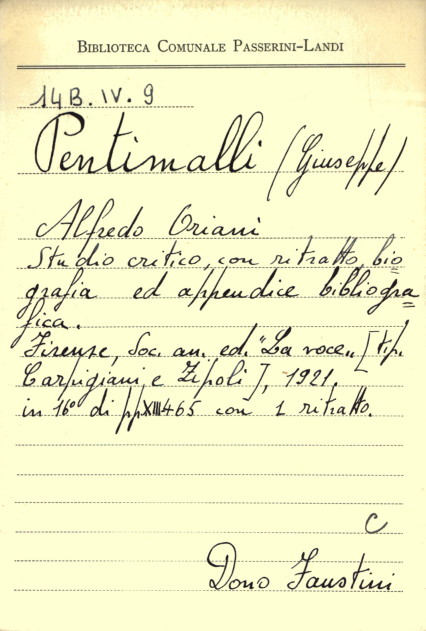 BIBLIOTECA COMUNALE PASSERINI-LANDI
14B. IV. 9
Pentimalli (Giuseppe)
Alfredo Oriani
Studio critico, con ritratto, bio=
grafia ed appendice bibliogra=
fica.
Firenze, Soc. an. ed. "La voce" [tip.
Carpigiani e Zipoli], 1921.
in 16° di pp XIII 465 con 1 ritratto.
C
Dono Faustini